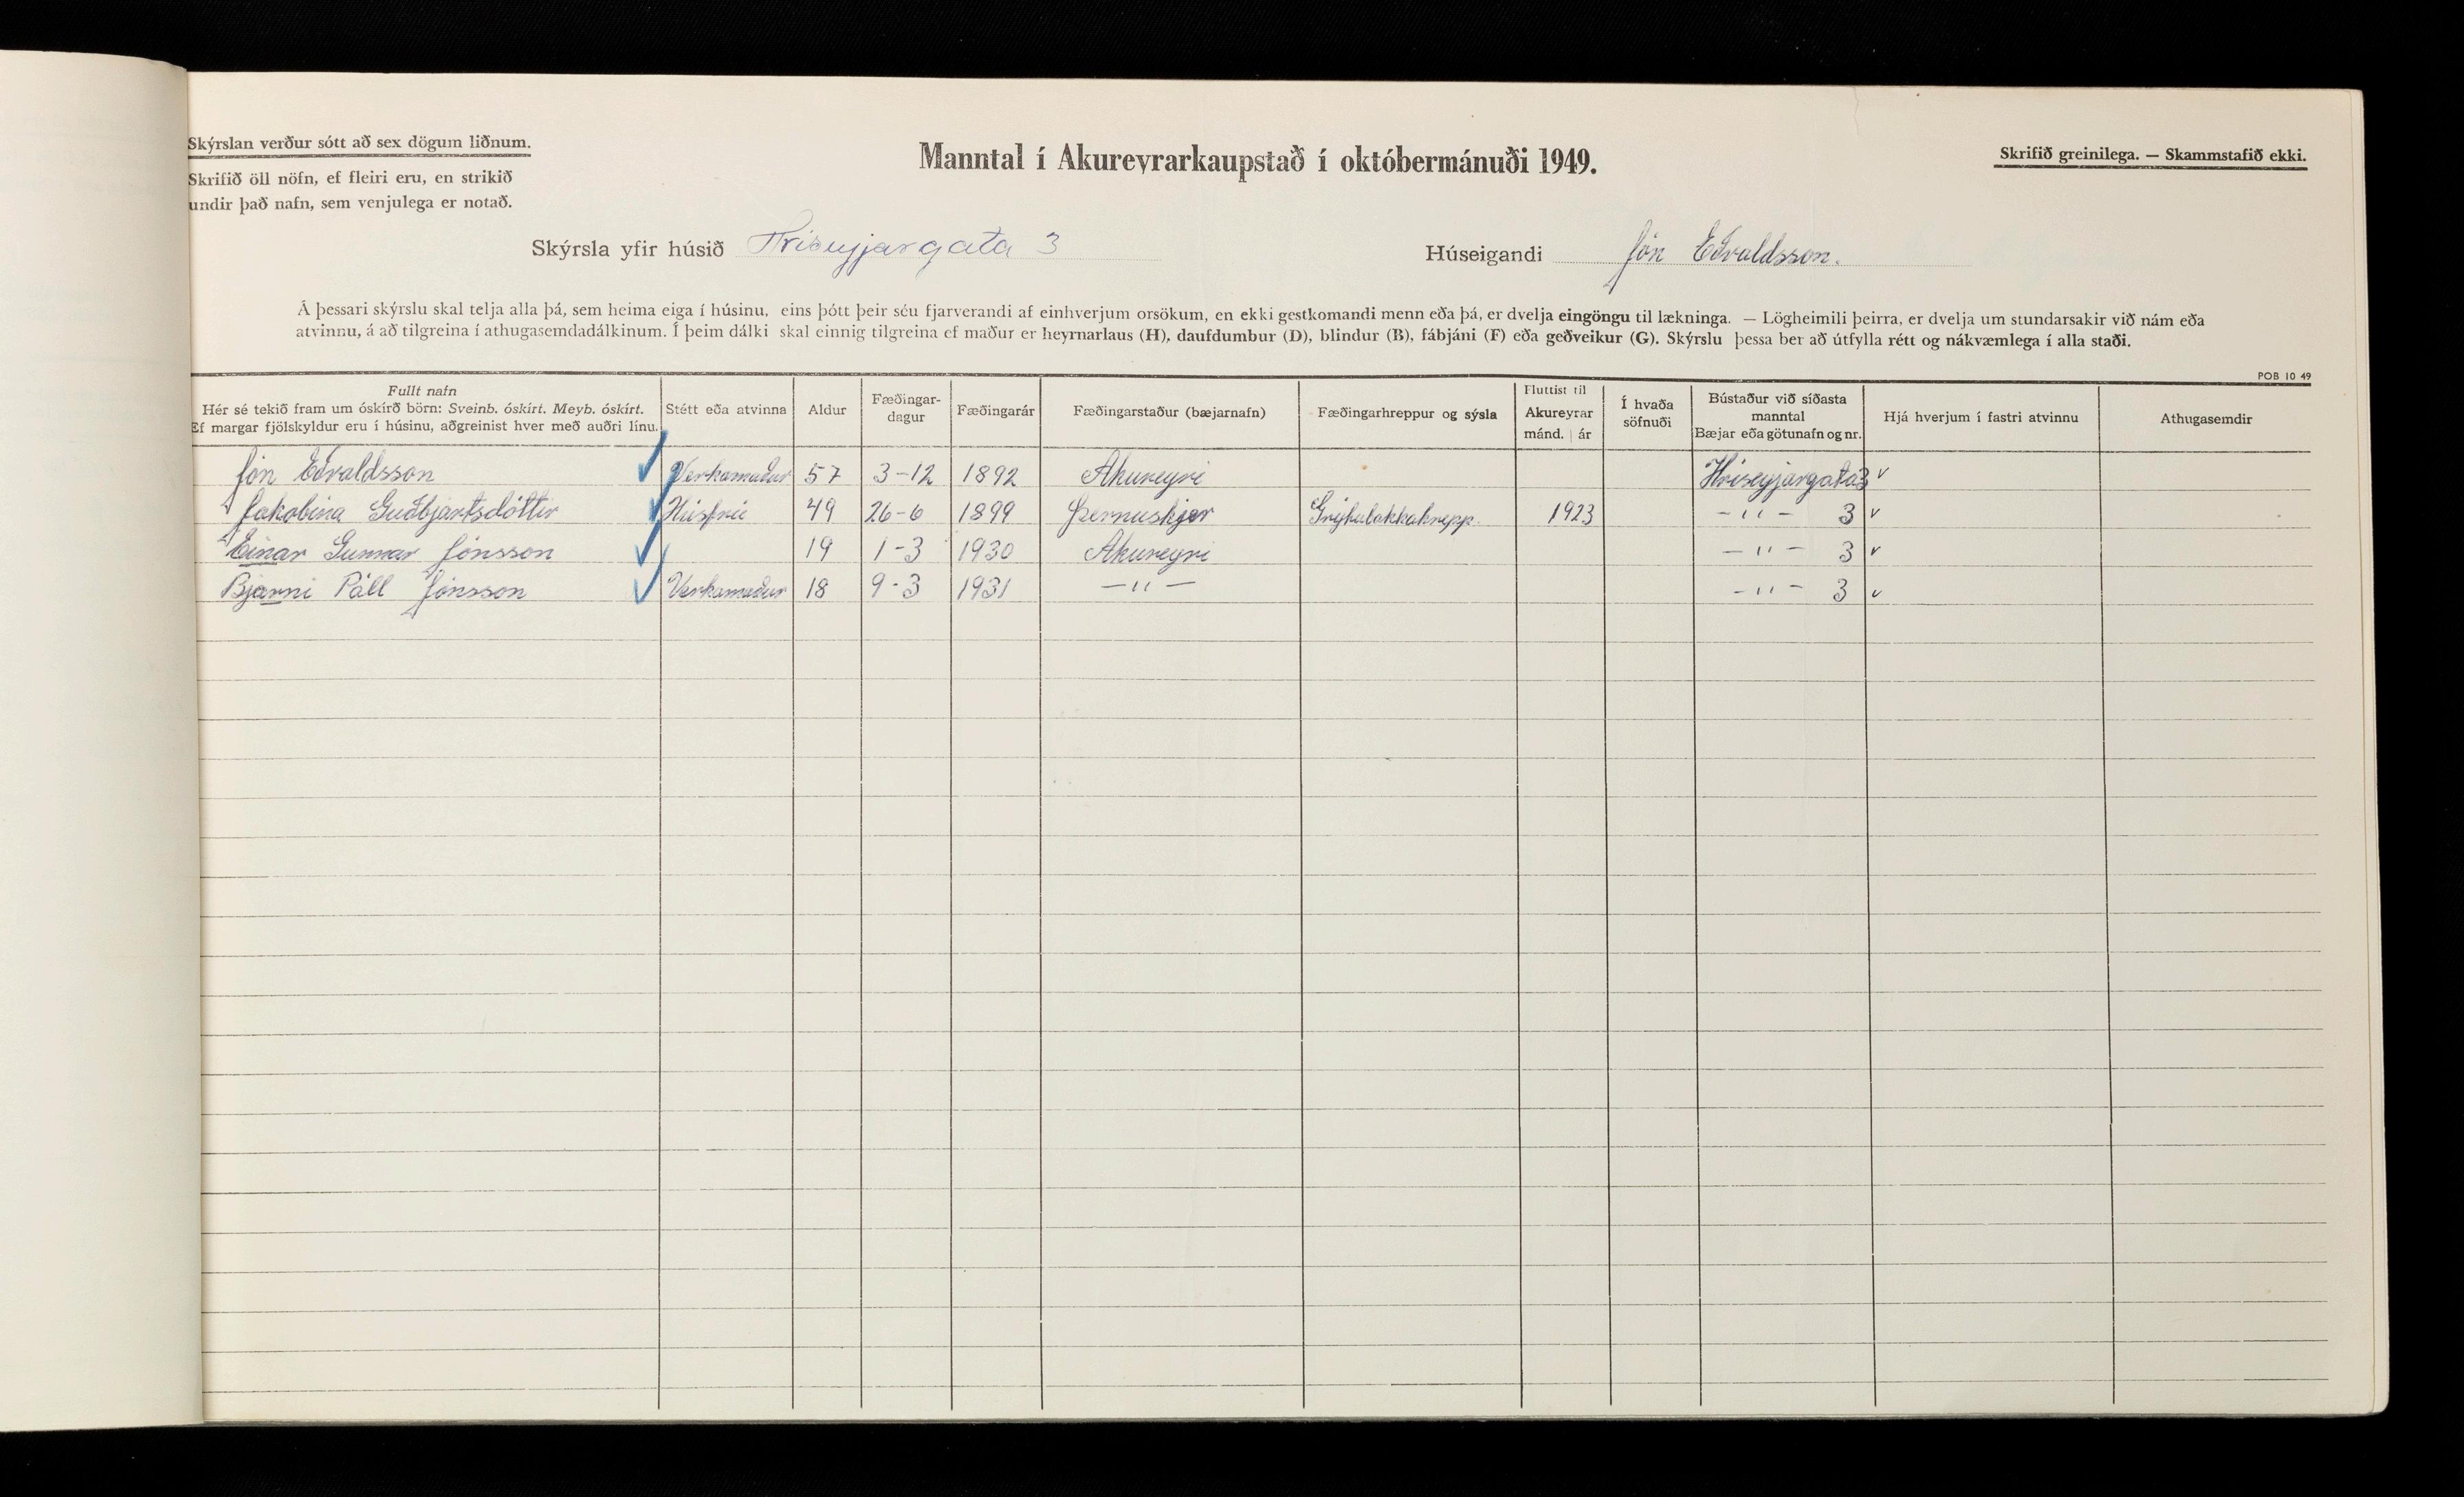 Skýrslan verður sótt að sex dögum liðnum.
Skrifið öll nöfn, ef fleiri eru, en strikið
undir það nafn, sem venjulega er notað.
Manntal í Akureyrarkaupstað í októbermánuði 1949.
Skrifið greinilega. — Skammstafið ekki.
Skýrsla yfir húsið Hríseyjargata 3
Húseigandi Jón Eðvaldsson.
Á þessari skýrslu skal telja alla þá, sem heima eiga í húsinu, eins þótt þeir séu fjarverandi af einhverjum orsökum, en ekki gestkomandi menn eða þá, er dvelja eingöngu til lækninga. — Lögheimili þeirra, er dvelja um stundarsakir við nám eða
atvinnu, á að tilgreina í athugasemdadálkinum. Í þeim dálki skal einnig tilgreina ef maður er heyrnarlaus (H), daufdumbur (D), blindur (B), fábjáni (F) eða geðveikur (G). Skýrslu þessa ber að útfylla rétt og nákvæmlega í alla staði.
POB 10 49
Fullt nafn
Hér sé tekið fram um óskírð börn: Sveinb. óskírt. Meyb. óskírt.
Ef margar fjölskyldur eru í húsinu, aðgreinist hver með auðri línu.
Stétt eða atvinna
Aldur
Fæðingar-
dagur
Fæðingarár
Fæðingarstaður (bæjarnafn)
Fæðingarhreppur og sýsla
Fluttist til
Akureyrar
mánd. | ár
Í hvaða
söfnuði
Bústaður við síðasta
manntal
Bæjar eða götunafn og nr.
Hjá hverjum í fastri atvinnu
Athugasemdir
Jón Eðvaldsson Verkamaður 57 3-12 1892 Akureyri Hríseyjargata 3
Jakobína Guðbjartsdóttir Húsfrú 49 26-6 1899 Þernusker Grýtubakkahrepp. 1923 -"- 3
Einar Gunnar Jónsson 19 1-3 1930 Akureyri -"- 3
Bjarni Páll Jónsson Verkamaður 18 9-3 1931 -"- -"- 3